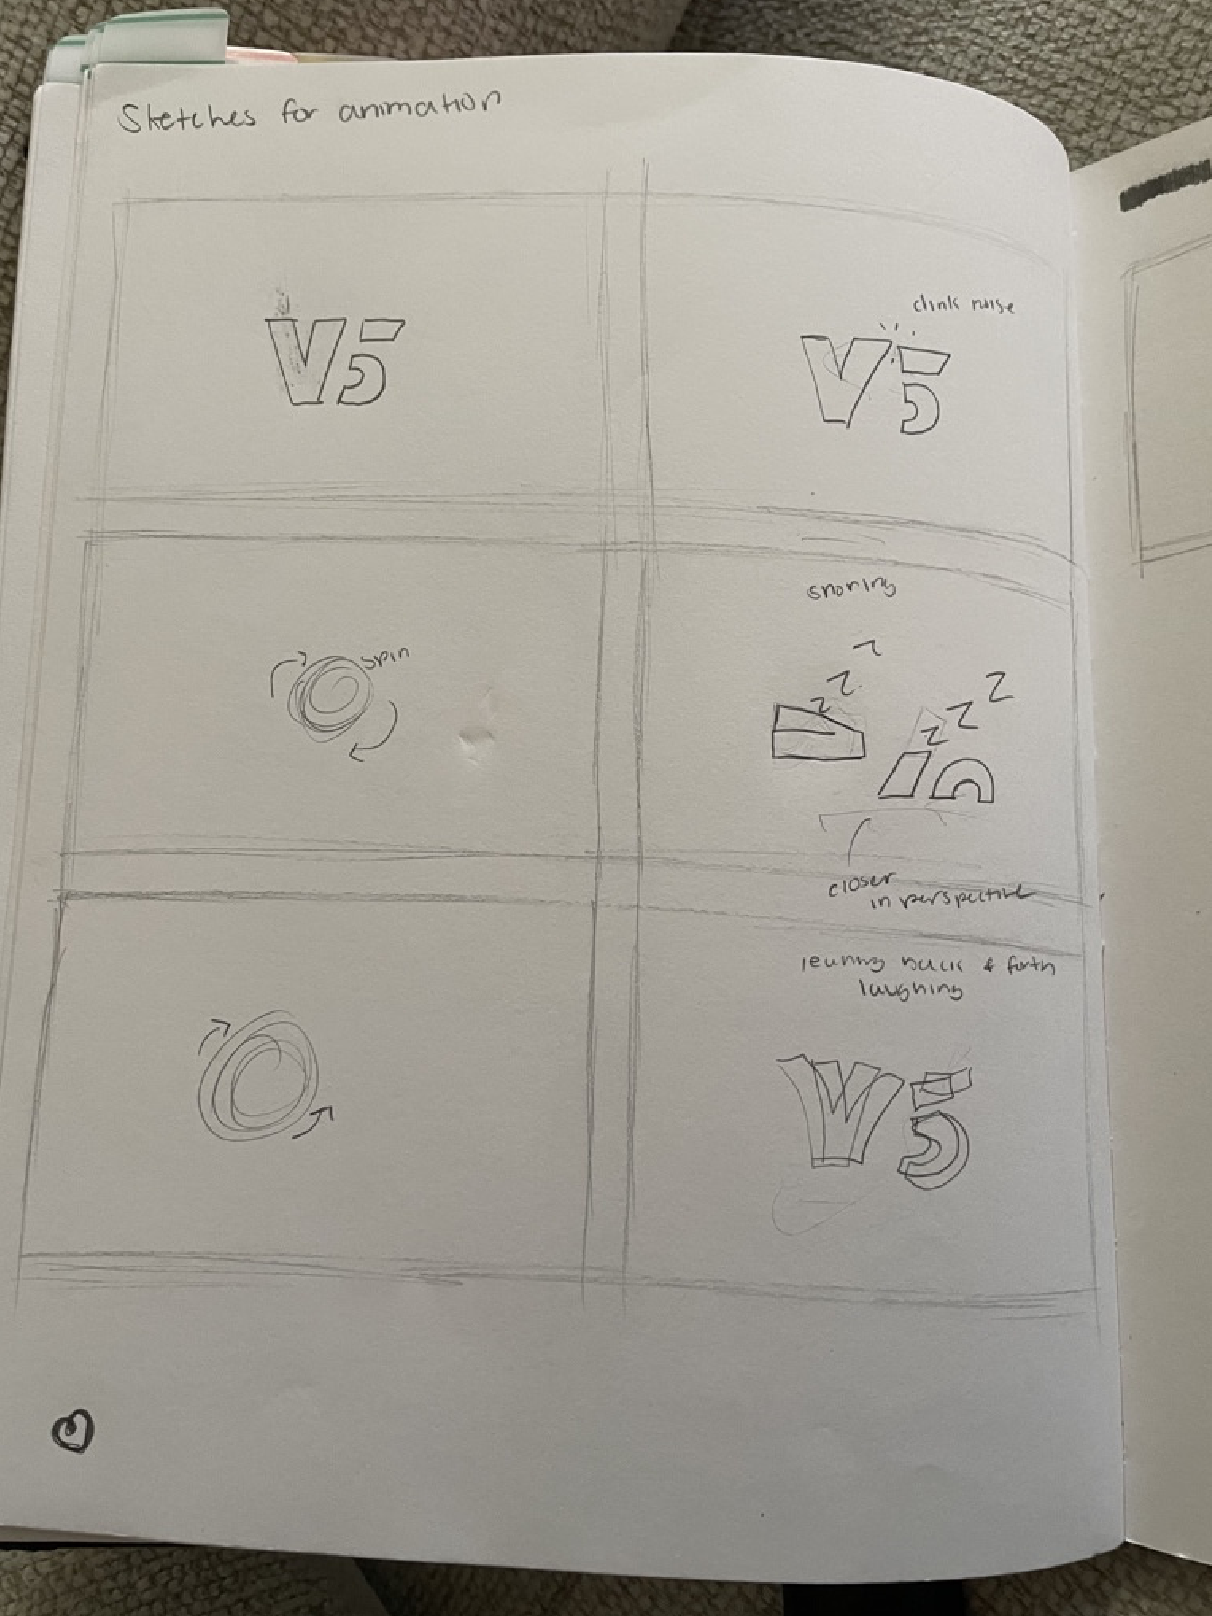 Sketches for animation
V5
clink noise
V5
spin
snoring
z z z
z z z
closer
in perspective
leaning back & forth
laughing
V5